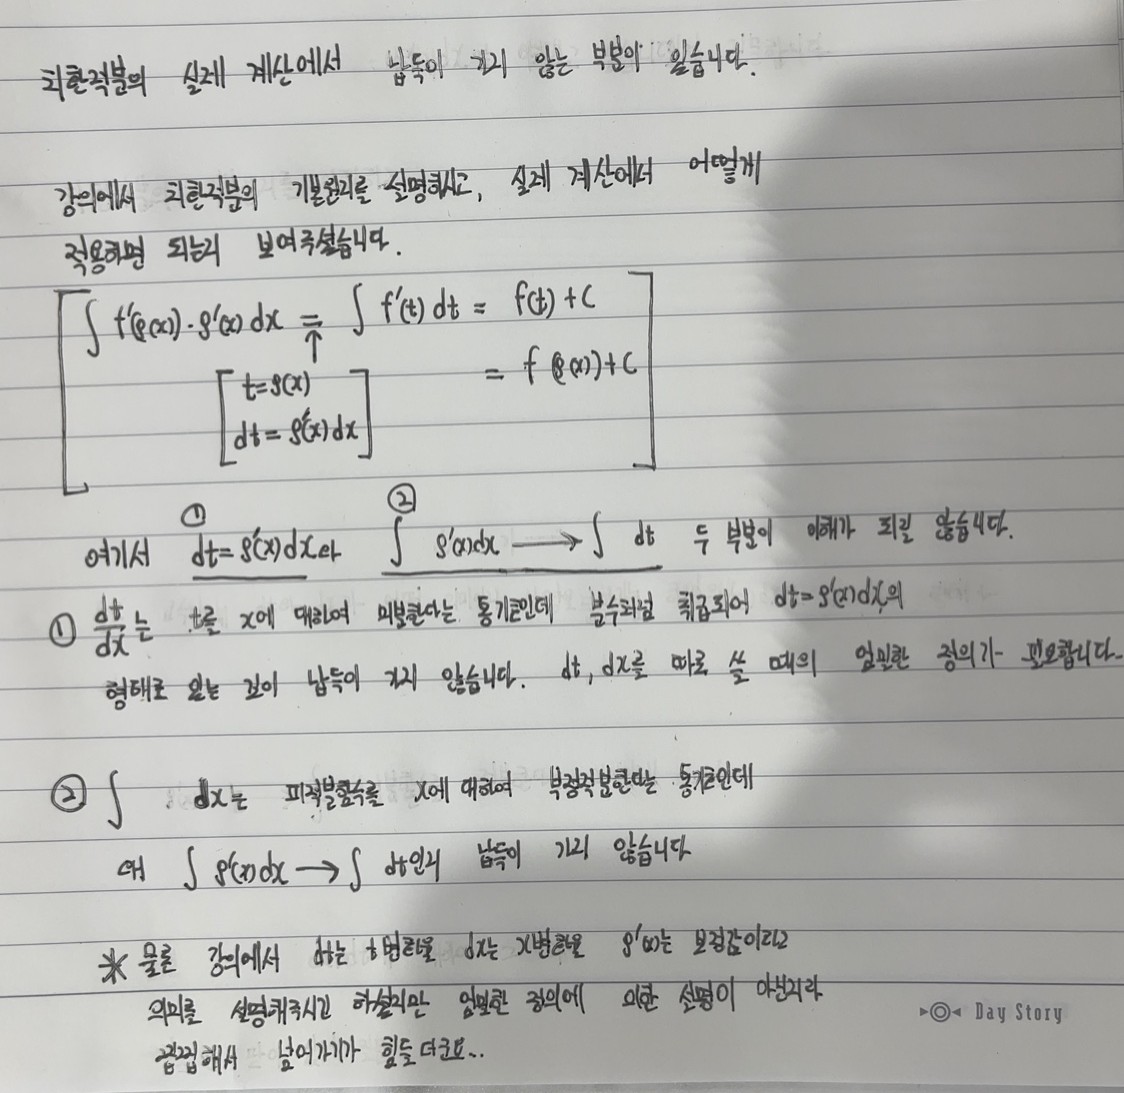 치환적분의 실제 계산에서 납득이 가지 않는 부분이 있습니다.
강의에서 치환적분의 기본원리를 설명하시고, 실제 계산에서 어떻게
적용하면 되는지 보여주셨습니다.
∫ f'(g(x))·g'(x) dx = ∫ f'(t) dt = f(t) + C
↑
t=g(x) = f(g(x))+C
dt = g'(x) dx
① ②
여기서 dt = g'(x) dx 와 ∫ g'(x)dx ⟶ ∫ dt 두 부분이 이해가 되질 않습니다.
① dt/dx 는 t를 x에 대하여 미분한다는 통기호인데 분수처럼 취급되어 dt=g'(x)dx의
형태로 있는 것이 납득이 가지 않습니다. dt, dx를 따로 쓸 때의 엄밀한 정의가 필요합니다.
② ∫ dx는 피적분함수를 x에 대하여 부정적분한다는 통기호인데
왜 ∫ g'(x)dx ⟶ ∫ dt인지 납득이 가지 않습니다
※ 물론 강의에서 dt는 t변화율 dx는 x변화율 g'(x)는 보정값이라고
의미를 설명해주시긴 하셨지만 엄밀한 정의에 의한 설명이 아닌지라
찝찝해서 넘어가기가 힘들더군요..
Day Story